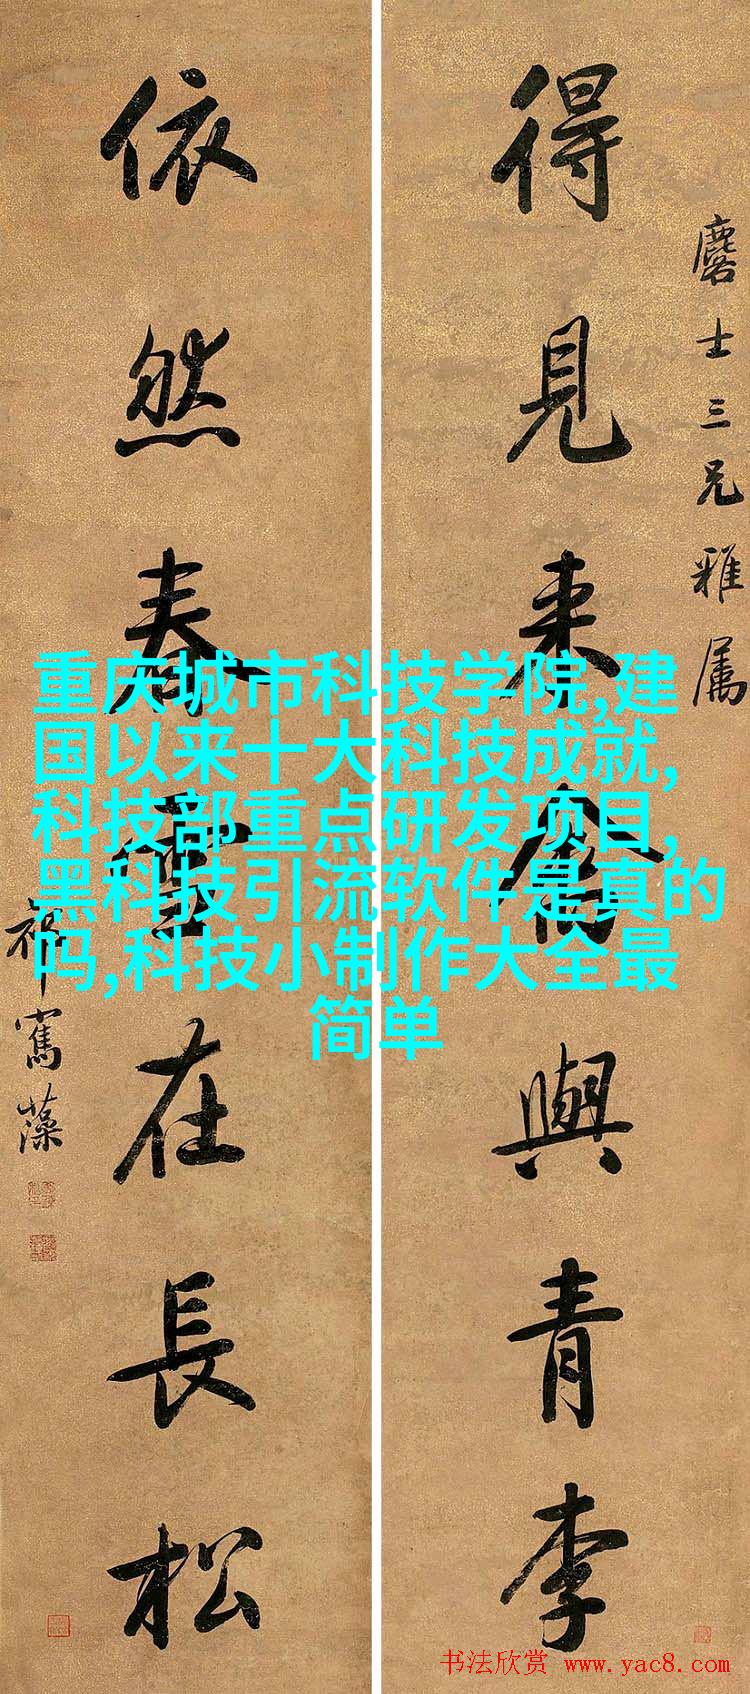 麐士三兄雅属
得見来禽與青李
依然春雪在長松
祁寯藻
重庆城市科技学院,建
国以来十大科技成就,
科技部重点研发项目,
黑科技引流软件是真的
吗,科技小制作大全最
简单
书法欣赏 www.yac8.com